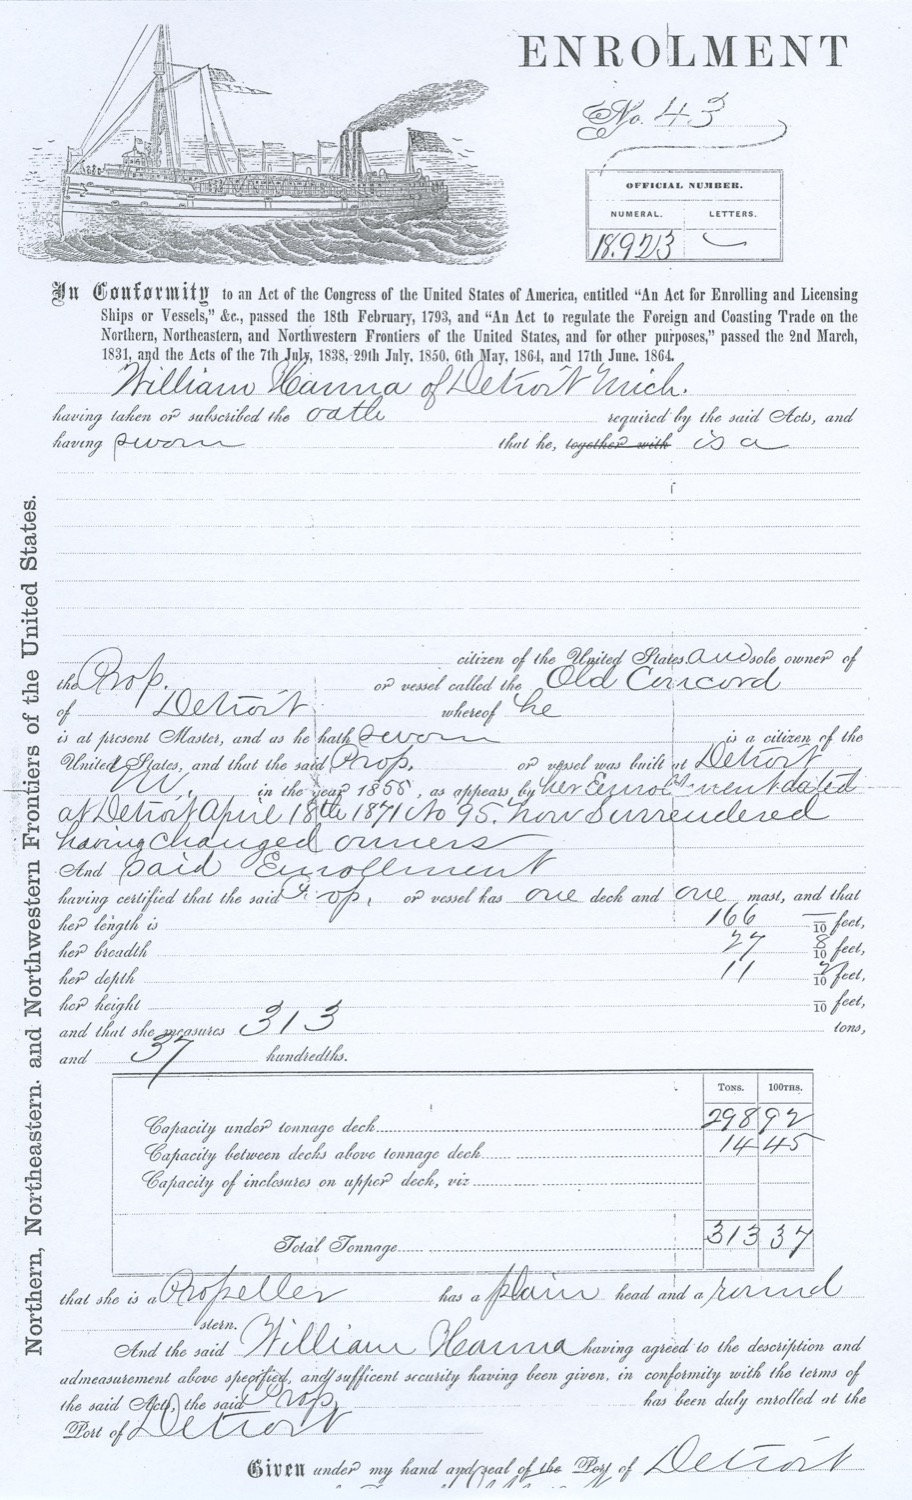 ENROLMENT
No. 43
OFFICIAL NUMBER.
NUMERAL. LETTERS.
18.923
In Conformity to an Act of the Congress of the United States of America, entitled “An Act for Enrolling and Licensing
Ships or Vessels,” &c., passed the 18th February, 1793, and “An Act to regulate the Foreign and Coasting Trade on the
Northern, Northeastern, and Northwestern Frontiers of the United States, and for other purposes,” passed the 2nd March,
1831, and the Acts of the 7th July, 1838, 29th July, 1850, 6th May, 1864, and 17th June, 1864.
William Hanna of Detroit Mich.
having taken or subscribed the oath required by the said Acts, and
having sworn that he, together with is a
Northern, Northeastern, and Northwestern Frontiers of the United States.
citizen of the United States and sole owner of
the Prop. or vessel called the Old Concord
of Detroit whereof he
is at present Master, and as he hath sworn is a citizen of the
United States, and that the said Prop. or vessel was built at Detroit
M. in the year 1855, as appears by her Enrollment dated
at Detroit April 18th 1871 No 95. now Surrendered
having changed owners
And said Enrollment
having certified that the said Prop, or vessel has one deck and one mast, and that
her length is 166 — /10 feet,
her breadth 27 8/10 feet,
her depth 11 2/10 feet,
her height /10 feet,
and that she measures 313 tons,
and 37 hundredths.
Tons. 100ths.
Capacity under tonnage deck 298 92
Capacity between decks above tonnage deck 14 45
Capacity of inclosures on upper deck, viz
Total Tonnage 313 37
that she is a Propeller has a plain head and a round
stern.
And the said William Hanna having agreed to the description and
admeasurement above specified, and sufficent security having been given, in conformity with the terms of
the said Acts, the said Prop, has been duly enrolled at the
Port of Detroit
Given under my hand and seal of the Port of Detroit